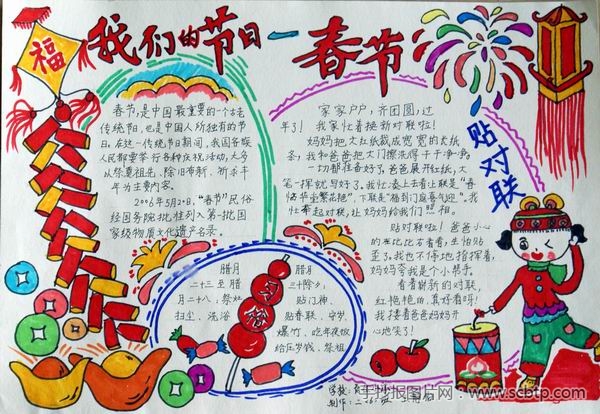 福
我们的节日—春节
春节,是中国最重要的一个古老
传统节日,也是中国人所独有的节
日。在这一传统节日期间,我国各族
人民都要举行各种庆祝活动,大多
以祭奠祖先、除旧布新、祈求丰
年为主要内容。
2006年5月20日,“春节”民俗
经国务院批准列入第一批国
家级物质文化遗产名录。
家家户户,齐团圆,过
年了!我家忙着换新对联啦!
妈妈把大红纸裁成宽宽的长纸
条,我和爸爸把大门擦洗得干干净净,
一切都准备好了。爸爸展开红纸,大
笔一挥就写好了。我忙凑上去看
忙牵起对联,让妈妈给我们照相。
贴对联
贴对联啦!爸爸小心
的在比比方看看,生怕贴
歪了。我也不停地指挥着,
妈妈夸我是个小帮手。
看着崭新的对联,
红艳艳的,真好看呀!
我搂着爸爸妈妈开
心地笑了!
腊月
二十三至腊
月二十八:祭灶
扫尘、洗浴
习俗
腊月
三十除夕:
贴门神、
贴春联、守岁、
爆竹、吃年夜饭
给压岁钱、祭祖
学校:
制作:
手抄报图片网-www.scbtp.com